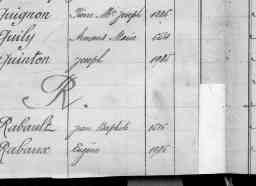 Guignon Pierre Me Joseph 1826
Guily Armand Marie
Guinton Joseph 1925
R.
Rabault Jean Baptiste
Rabaux Eugène 1926